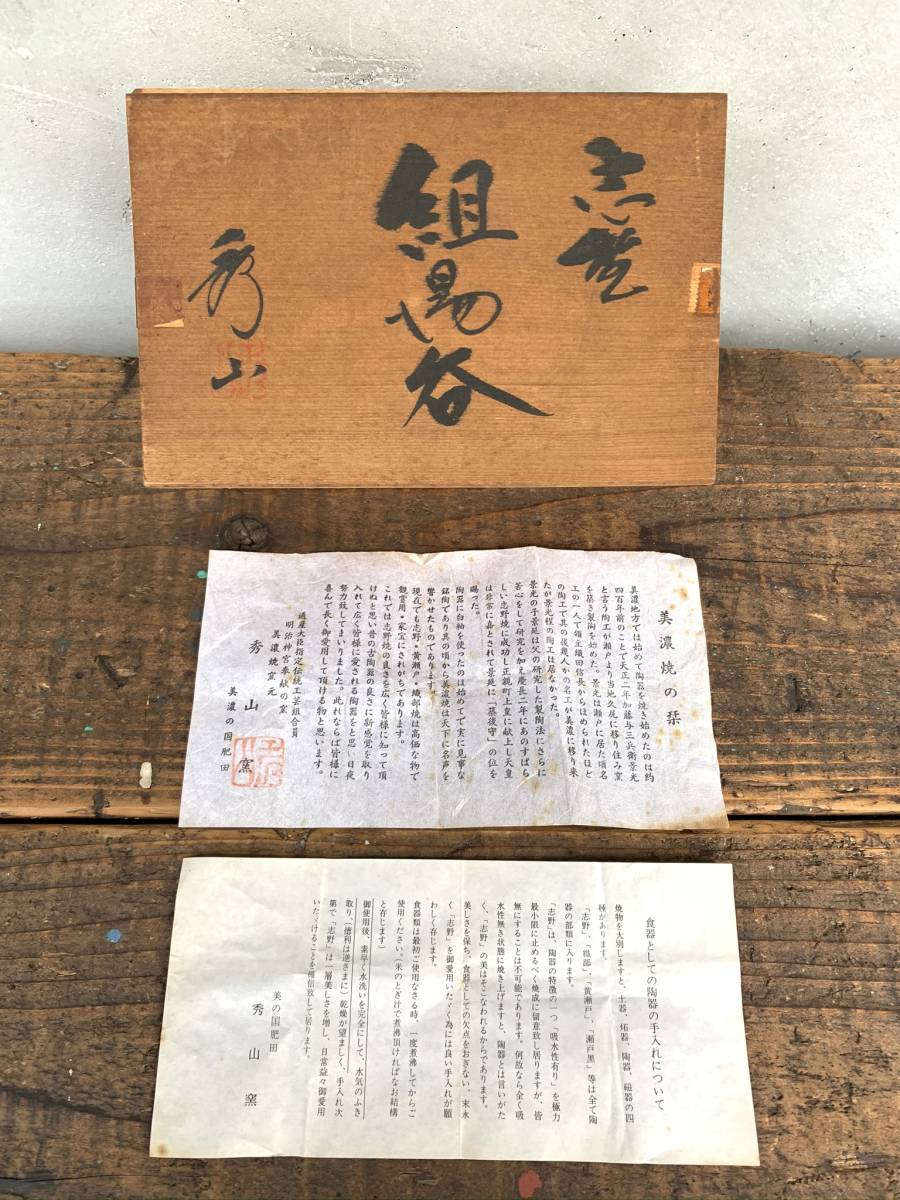 志野
組湯呑
秀山
美濃焼の栞
美濃地方では始めて陶器を焼き始めたのは約
四百年前のことで天正二年加藤与三兵衛景光
と言う陶工が瀬戸より当地久尻に移り住み窯
を築き製陶を始めた。景光は瀬戸に居た頃名
工の一人で領主織田信長からほめられたほど
の陶工で其の後幾人かの名工が美濃に移り来
たが景光程の陶工は居なかった。
景光の子景延は父の研究した製陶法にさらに
苦心をして研究を加え慶長二年にあのすばら
しい志野焼に成功し正親町上皇に献上し天皇
は非常に喜とされて景延に「筑後守」の位を
賜った。
陶器に白釉を使ったのは始めてで実に見事な
銘陶であり其の頃から美濃焼は天下に名声を
響かせたものであります。
現在でも志野・黄瀬戸・織部焼は高価な物で
観賞用・家宝にされがちであります。
これでは志野焼の良さを広く皆様に知って頂
けぬと思い昔の古陶器の良さに新感覚を取り
入れて広く皆様に愛される陶器をと思い日夜
努力致してまいりました。此れならば皆様に
喜んで長く御愛用して頂ける物と思います。
通産大臣指定伝統工芸組合員
明治神宮奉献の窯
美濃焼窯元
秀山窯
美濃の国肥田
食器としての陶器の手入れについて
焼物を大別しますと、土器、炻器、陶器、磁器の四
種があります。
「志野」、「織部」、「黄瀬戸」、「瀬戸黒」等は全て陶
器の部類に入ります。
「志野」は、陶器の特徴の一つ「吸水性有り」を極力
最小限に止めるべく焼成に留意致し居りますが、皆
無にすることは不可能であります。何故なら全く吸
水性無き状態に焼き上げますと、陶器とは言いがた
く、「志野」の美はそこなわれるからであります。
美しさを保ち、食器としての欠点をおぎない、末永
く「志野」を御愛用いたゞく為には良い手入れが願
わしく存じます。
食器類は最初ご使用なさる時、一度煮沸してからご
使用ください。(米のとぎ汁で煮沸頂ければなお結構
と存じます)
御使用後、素早く水洗いを完全にして、水気のふき
取り、(徳利は逆さまに)乾燥が望ましく、手入れ次
第で「志野」は一層美しさを増し、日常益々御愛用
いたゞけることを確信致して居ります。
美の国肥田
秀山窯